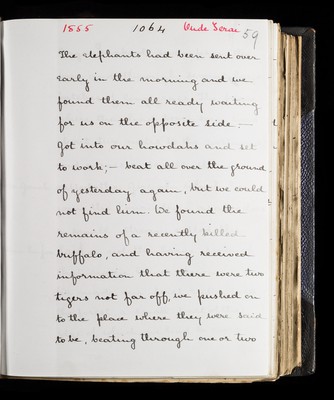 1885 1064 Oude Terai 59
The elephants had been sent over
early in the morning and we
found them all ready waiting
for us on the opposite side. —
Got into our howdahs and set
to work; — beat all over the ground
of yesterday again, but we could
not find him. We found the
remains of a recently killed
buffalo, and having received
information that there were two
tigers not far off, we pushed on
to the place where they were said
to be, beating through one or two